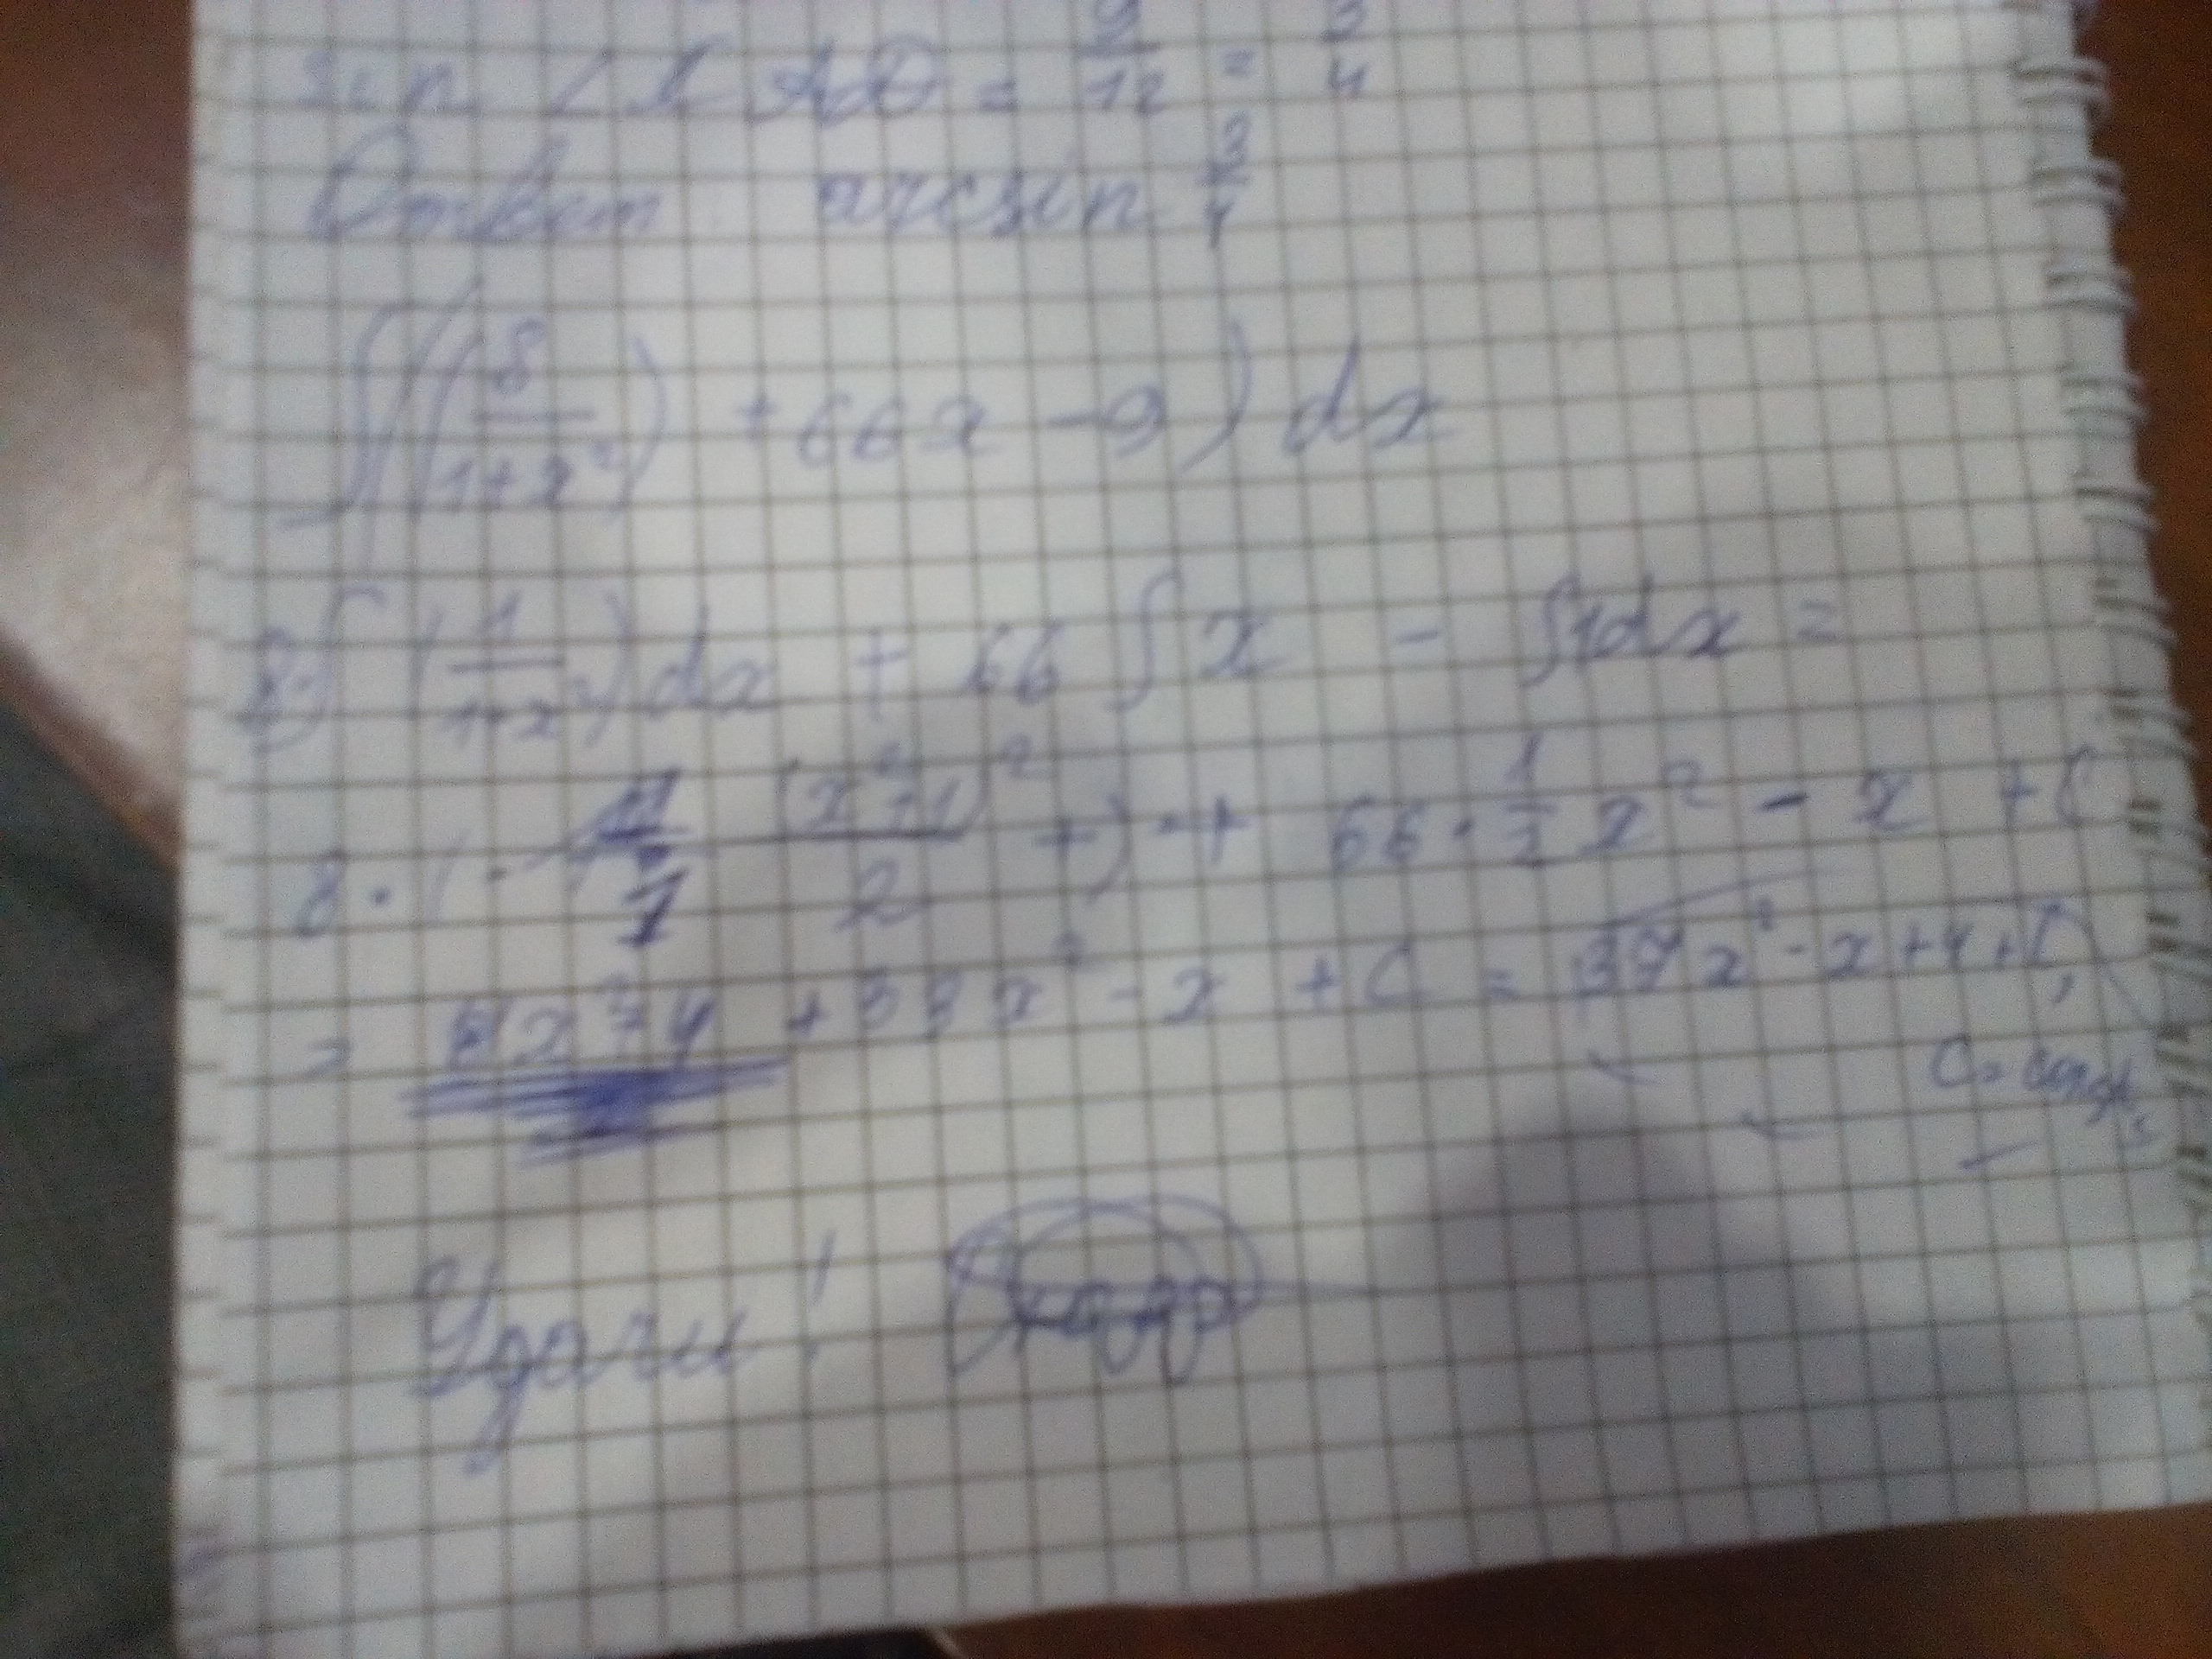 sin ∠ = 9/12 = 3/4
Ответ: arcsin 3/4
∫((8/(1+x²)) + 66x - 9) dx
8·∫(1/(1+x²))dx + 66∫x - ∫1dx =
8·( (x²+1)²/2 ) + 66·1/2 x² - x + C
= x² 4 + 33x² - x + C = 37x² - x + 4 + C,
C = const
Удачи!